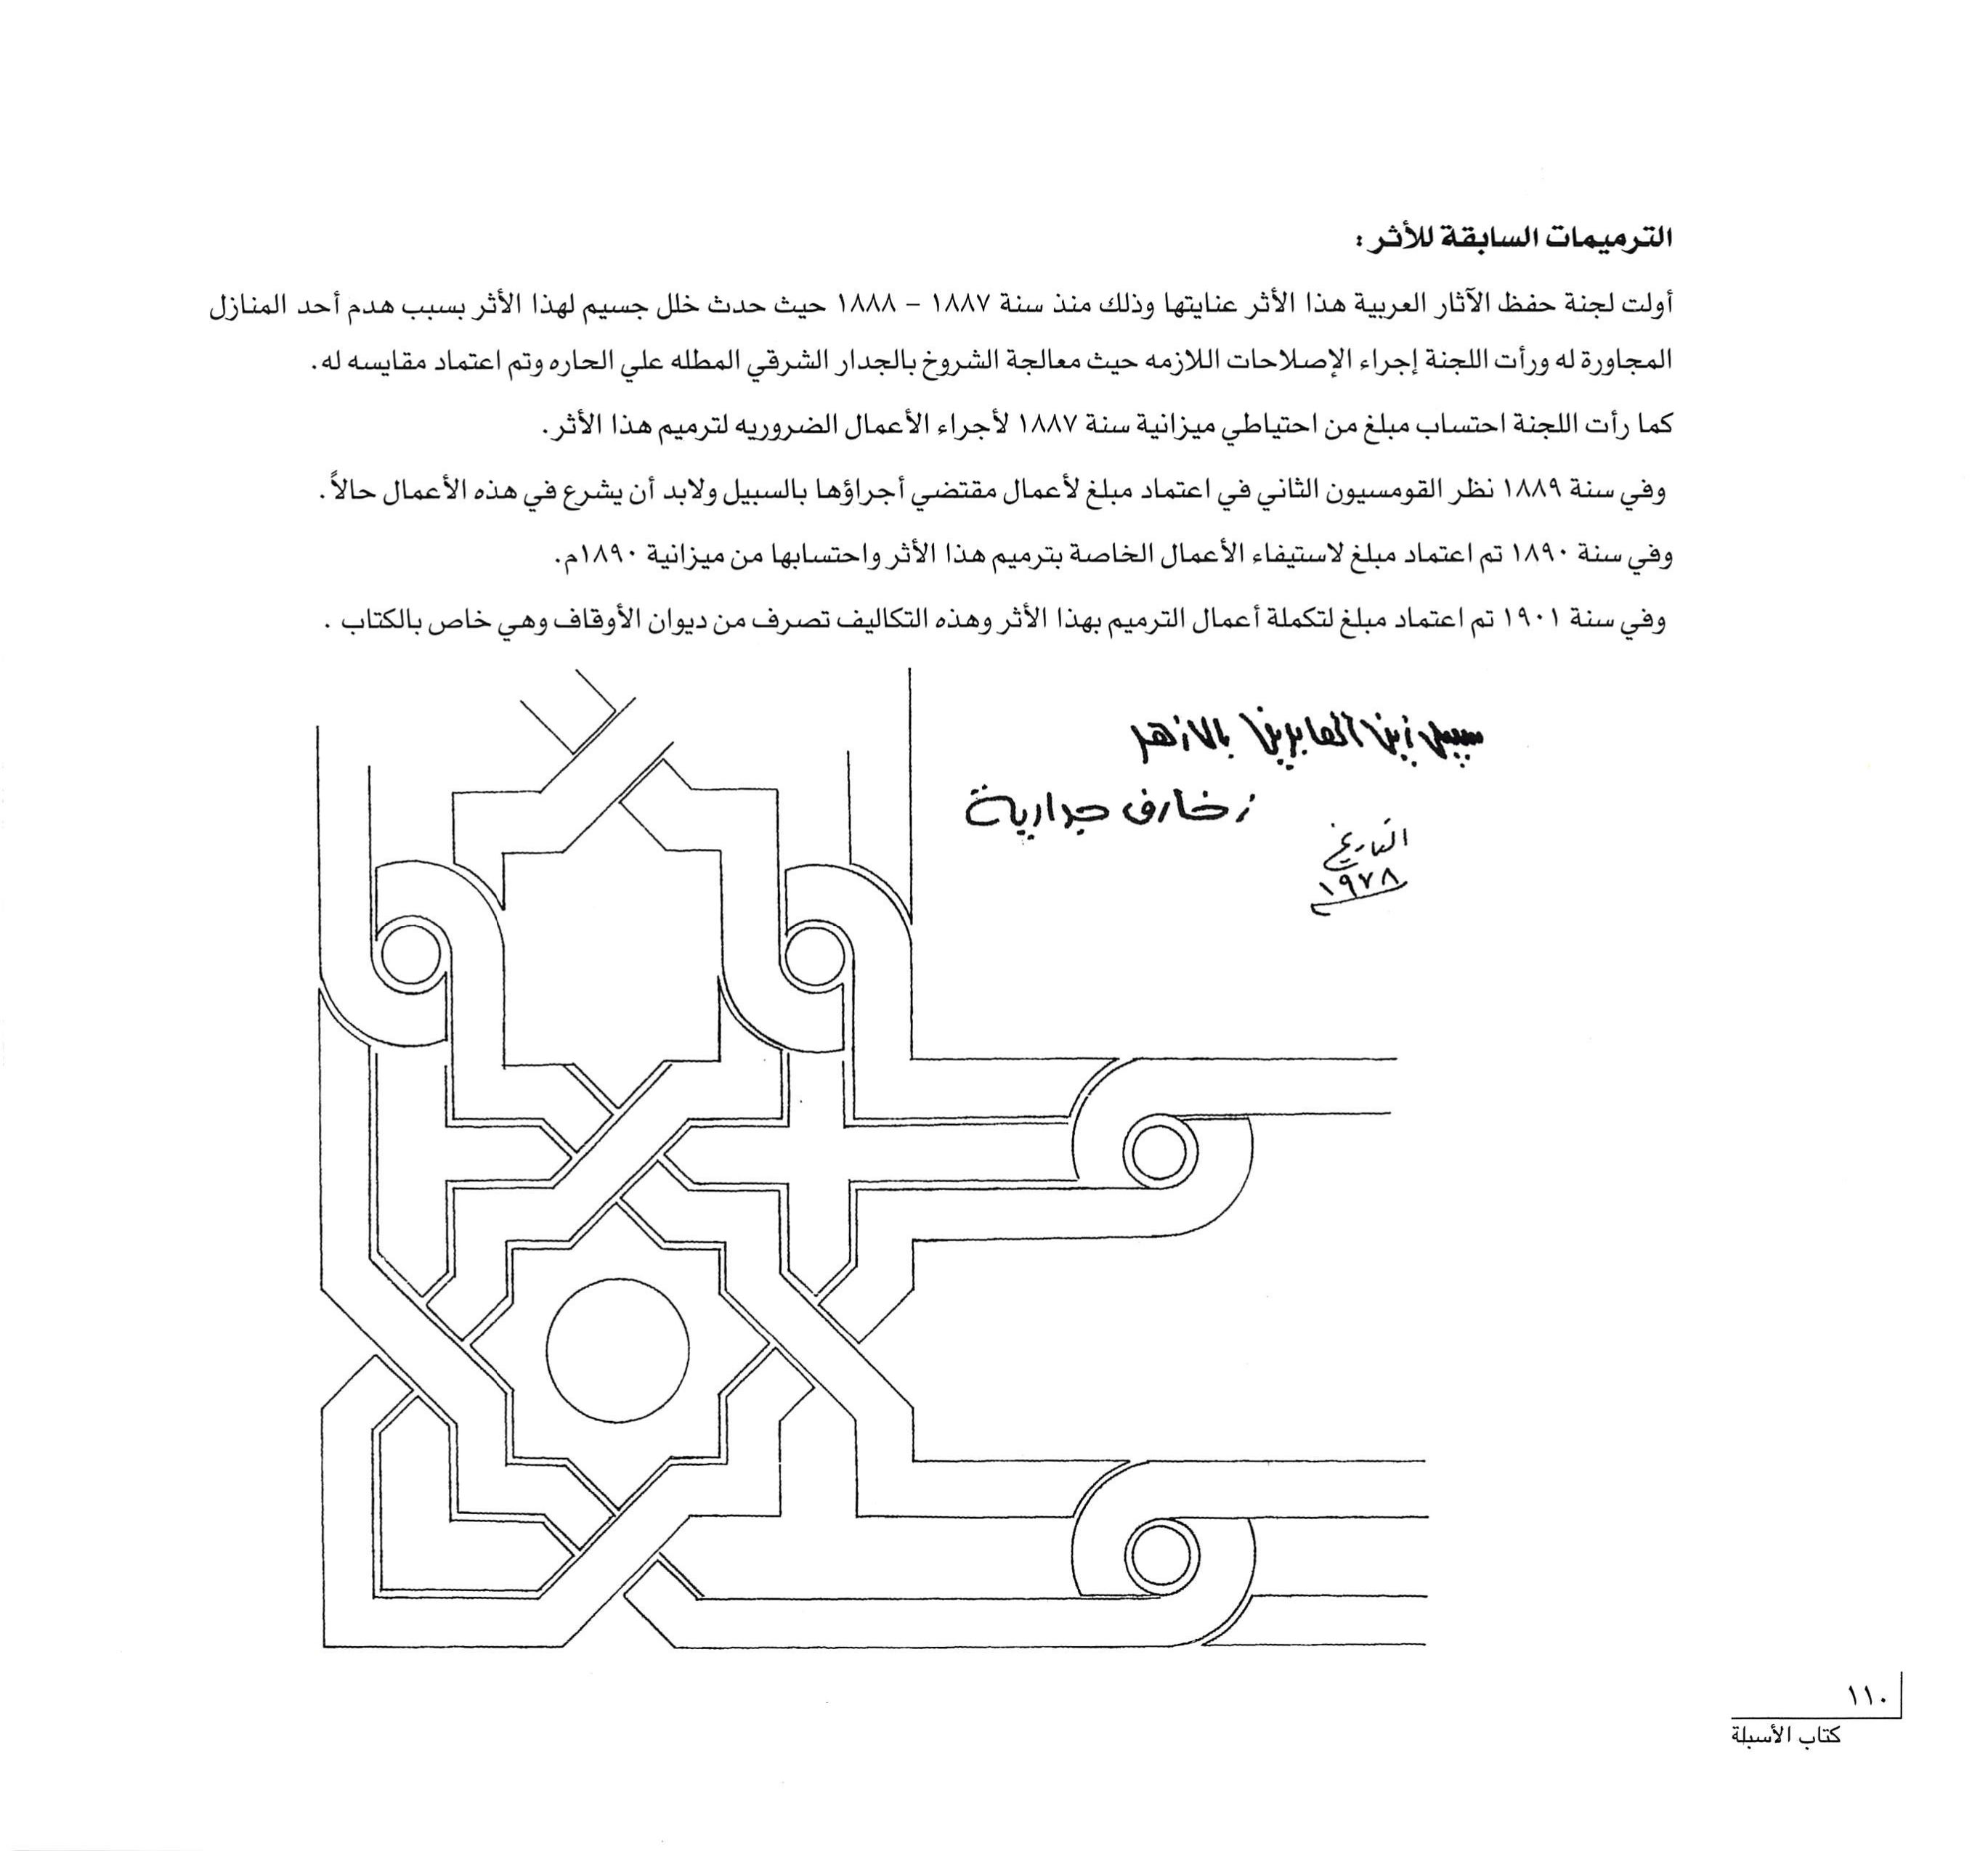 الترميمات السابقة للأثر :
أولت لجنة حفظ الآثار العربية هذا الأثر عنايتها وذلك منذ سنة ١٨٨٧ – ١٨٨٨ حيث حدث خلل جسيم لهذا الأثر بسبب هدم أحد المنازل
المجاورة له ورأت اللجنة إجراء الإصلاحات اللازمه حيث معالجة الشروخ بالجدار الشرقي المطله علي الحاره وتم اعتماد مقايسه له.
كما رأت اللجنة احتساب مبلغ من احتياطي ميزانية سنة ١٨٨٧ لأجراء الأعمال الضروريه لترميم هذا الأثر.
وفي سنة ١٨٨٩ نظر القومسيون الثاني في اعتماد مبلغ لأعمال مقتضي أجراؤها بالسبيل ولابد أن يشرع في هذه الأعمال حالاً.
وفي سنة ١٨٩٠ تم اعتماد مبلغ لاستيفاء الأعمال الخاصة بترميم هذا الأثر واحتسابها من ميزانية ١٨٩٠م.
وفي سنة ١٩٠١ تم اعتماد مبلغ لتكملة أعمال الترميم بهذا الأثر وهذه التكاليف تصرف من ديوان الأوقاف وهي خاص بالكتاب .
سبيل زين العابدين بالازهر
زخارف جدارية
التاريخ
١٩٧٨
١١٠
كتاب الأسبلة